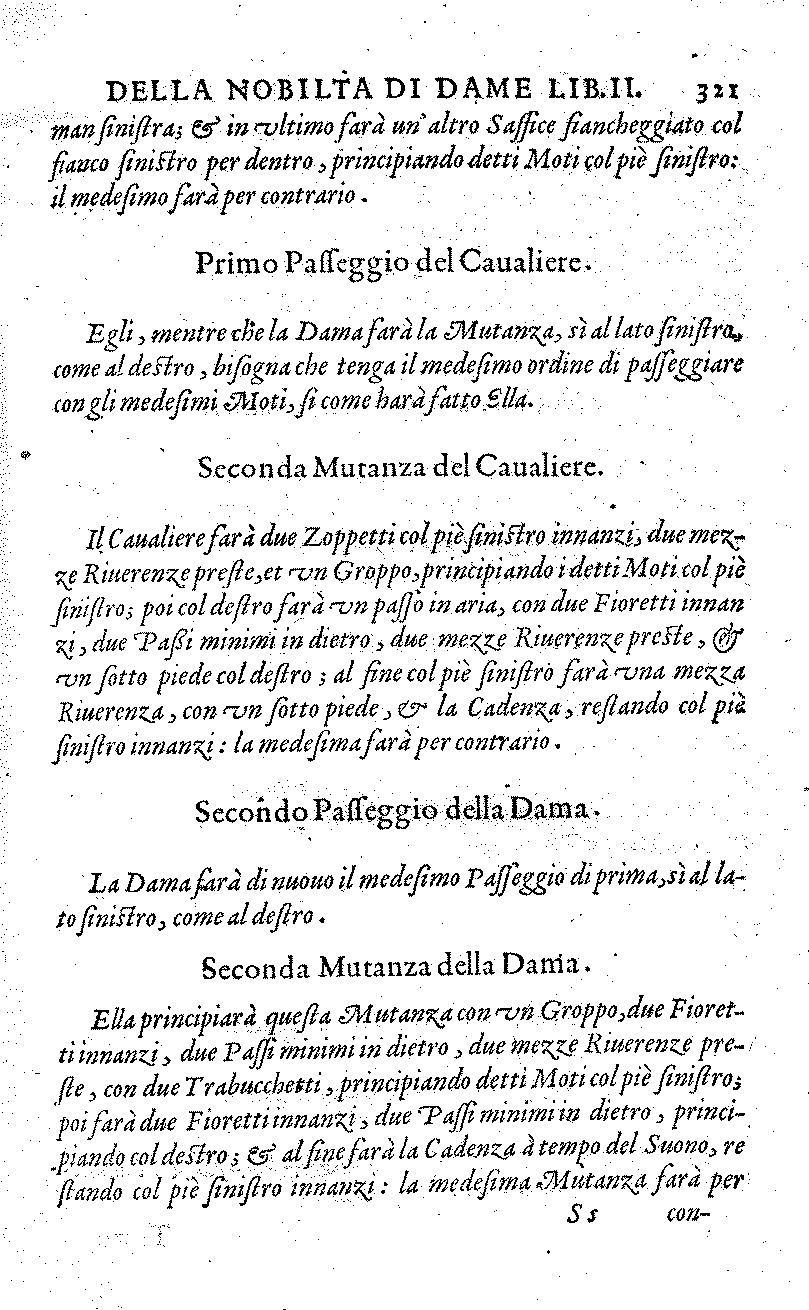 DELLA NOBILTA DI DAME LIB. II. 321
man ſiniſtra; & in vltimo farà un' altro Saffice fiancheggiato col
fianco ſiniſtro per dentro, principiando detti Moti col piè ſiniſtro:
il medeſimo farà per contrario.
Primo Paſſeggio del Caualiere.
Egli, mentre che la Dama farà la Mutanza, sì al lato ſiniſtro,
come al deſtro, biſogna che tenga il medeſimo ordine di paſſeggiare
con gli medeſimi Moti, ſi come harà fatto Ella.
Seconda Mutanza del Caualiere.
Il Caualiere farà due Zoppetti col piè ſiniſtro innanzi, due mez-
ze Riuerenze preſte, et vn Groppo, principiando i detti Moti col piè
ſiniſtro; poi col deſtro farà vn paſſo in aria, con due Fioretti innan
zi, due Paßi minimi in dietro, due mezze Riuerenze preſte, &
vn ſotto piede col deſtro; al fine col piè ſiniſtro farà vna mezza
Riuerenza, con vn ſotto piede, & la Cadenza, reſtando col piè
ſiniſtro innanzi: la medeſima farà per contrario.
Secondo Paſſeggio della Dama.
La Dama farà di nuouo il medeſimo Paſſeggio di prima, sì al la-
to ſiniſtro, come al deſtro.
Seconda Mutanza della Dama.
Ella principiarà queſta Mutanza con vn Groppo, due Fioret-
ti innanzi, due Paſſi minimi in dietro, due mezze Riuerenze pre-
ſte, con due Trabucchetti, principiando detti Moti col piè ſiniſtro;
poi farà due Fioretti innanzi, due Paſſi minimi in dietro, princi-
piando col deſtro; & al fine farà la Cadenza à tempo del Suono, re
ſtando col piè ſiniſtro innanzi: la medeſima Mutanza farà per
S s con-